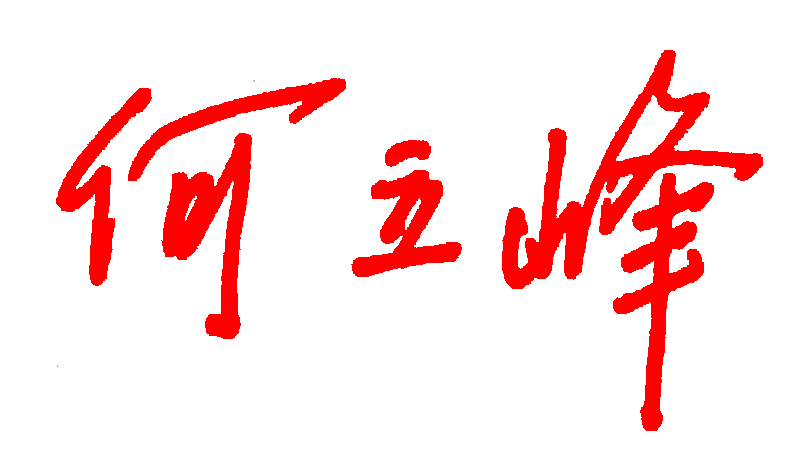 何立峰